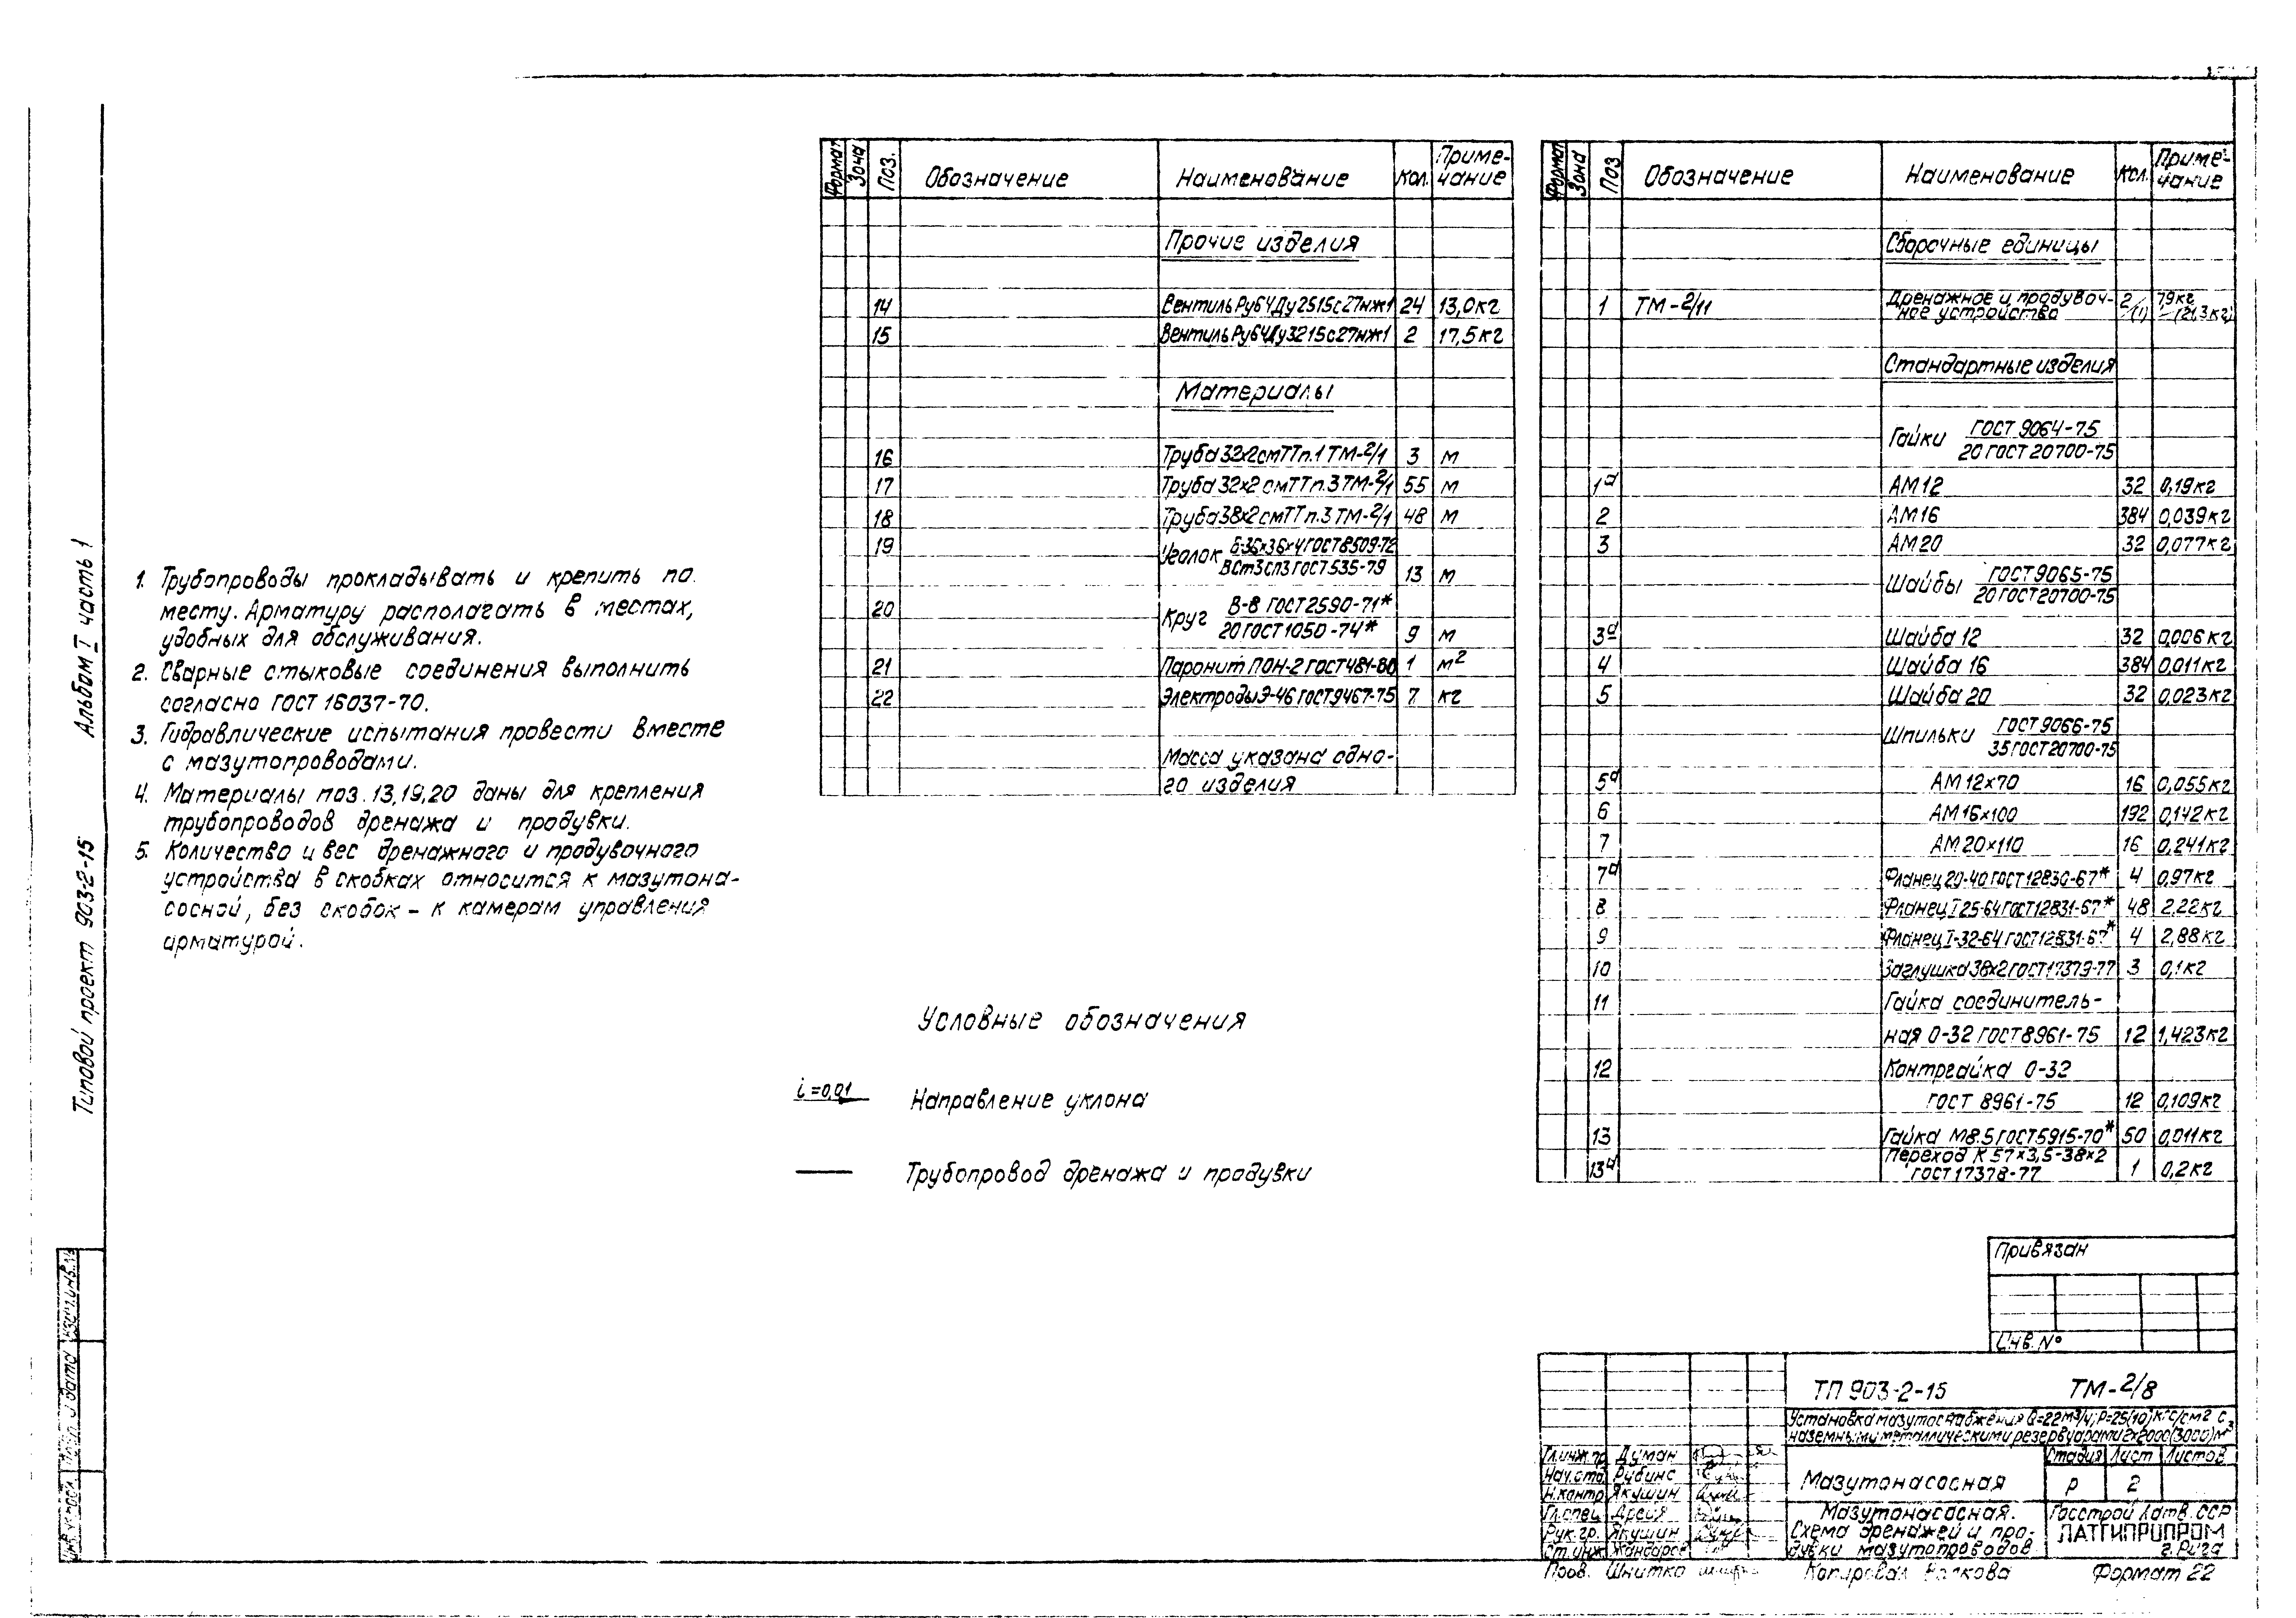 Альбом I часть 1
Типовой проект 903-2-15
1. Трубопроводы прокладывать и крепить по
месту. Арматуру располагать в местах,
удобных для обслуживания.
2. Сварные стыковые соединения выполнить
согласно ГОСТ 16037-70.
3. Гидравлические испытания провести вместе
с мазутопроводами.
4. Материалы поз. 13,19,20 даны для крепления
трубопроводов дренажа и продувки.
5. Количество и вес дренажного и продувочного
устройства в скобках относится к мазутона-
сосной, без скобок - к камерам управления
арматурой.
Формат Зона Поз. Обозначение Наименование Кол. Приме-
чание
Прочие изделия
14 Вентиль Ру64 Ду25 15с27нж1 24 13,0кг
15 Вентиль Ру64 Ду32 15с27нж1 2 17,5кг
Материалы
16 Труба 32х2 см ТТ п.1 ТМ-2/1 3 м
17 Труба 32х2 см ТТ п.3 ТМ-2/1 55 м
18 Труба 38х2 см ТТ п.3 ТМ-2/1 48 м
19 Уголок Б-36х36х4 ГОСТ 8509-72
ВСт3сп3 ГОСТ 535-79 13 м
20 Круг В-8 ГОСТ 2590-71*
20 ГОСТ 1050-74* 9 м
21 Паронит ПОН-2 ГОСТ 481-80 1 м2
22 Электроды Э-46 ГОСТ 9467-75 7 кг
Масса указана одно-
го изделия
Формат Зона Поз Обозначение Наименование Кол. Приме-
чание
Сборочные единицы
1 ТМ-2/11 Дренажное и продувоч- 2 79кг
ное устройство (1) (21,3кг)
Стандартные изделия
Гайки ГОСТ 9064-75
20 ГОСТ 20700-75
1а АМ12 32 0,19кг
2 АМ16 384 0,039кг
3 АМ20 32 0,077кг
Шайбы ГОСТ 9065-75
20 ГОСТ 20700-75
3а Шайба 12 32 0,006кг
4 Шайба 16 384 0,011кг
5 Шайба 20 32 0,023кг
Шпильки ГОСТ 9066-75
35 ГОСТ 20700-75
5а АМ12х70 16 0,055кг
6 АМ16х100 192 0,142кг
7 АМ20х110 16 0,241кг
7а Фланец 20-40 ГОСТ 12830-67* 4 0,97кг
8 Фланец I 25-64 ГОСТ 12831-67* 48 2,22кг
9 Фланец I-32-64 ГОСТ 12831-67* 4 2,88кг
10 Заглушка 38х2 ГОСТ 17379-77 3 0,1кг
11 Гайка соединитель-
ная О-32 ГОСТ 8961-75 12 1,423кг
12 Контргайка О-32
ГОСТ 8961-75 12 0,109кг
13 Гайка М8.5 ГОСТ 5915-70* 50 0,011кг
13а Переход К 57х3,5-38х2
ГОСТ 17378-77 1 0,2кг
Условные обозначения
i=0,01 Направление уклона
Трубопровод дренажа и продувки
Привязан
Инв. №
ТП 903-2-15 ТМ-2/8
Установка мазутоснабжения Q=22м3/ч; Р=25(10)кгс/см2 с
наземными металлическими резервуарами 2х2000(3000)м3
Гл.инж.пр Думан
Нач.отд Рубинс
Н.контр Якушин
Гл.спец Дрейя
Рук.гр. Якушин
Ст.инж Жандаров
Пров. Шнитко
Мазутонасосная
Стадия Лист Листов
Р 2
Мазутонасосная.
Схема дренажей и про-
дувки мазутопроводов
Госстрой Латв.ССР
ЛАТГИПРОПРОМ
г. Рига
Копировал Волкова Формат 22
Взам.инв.№
Подп. и дата
Инв.№ подл.